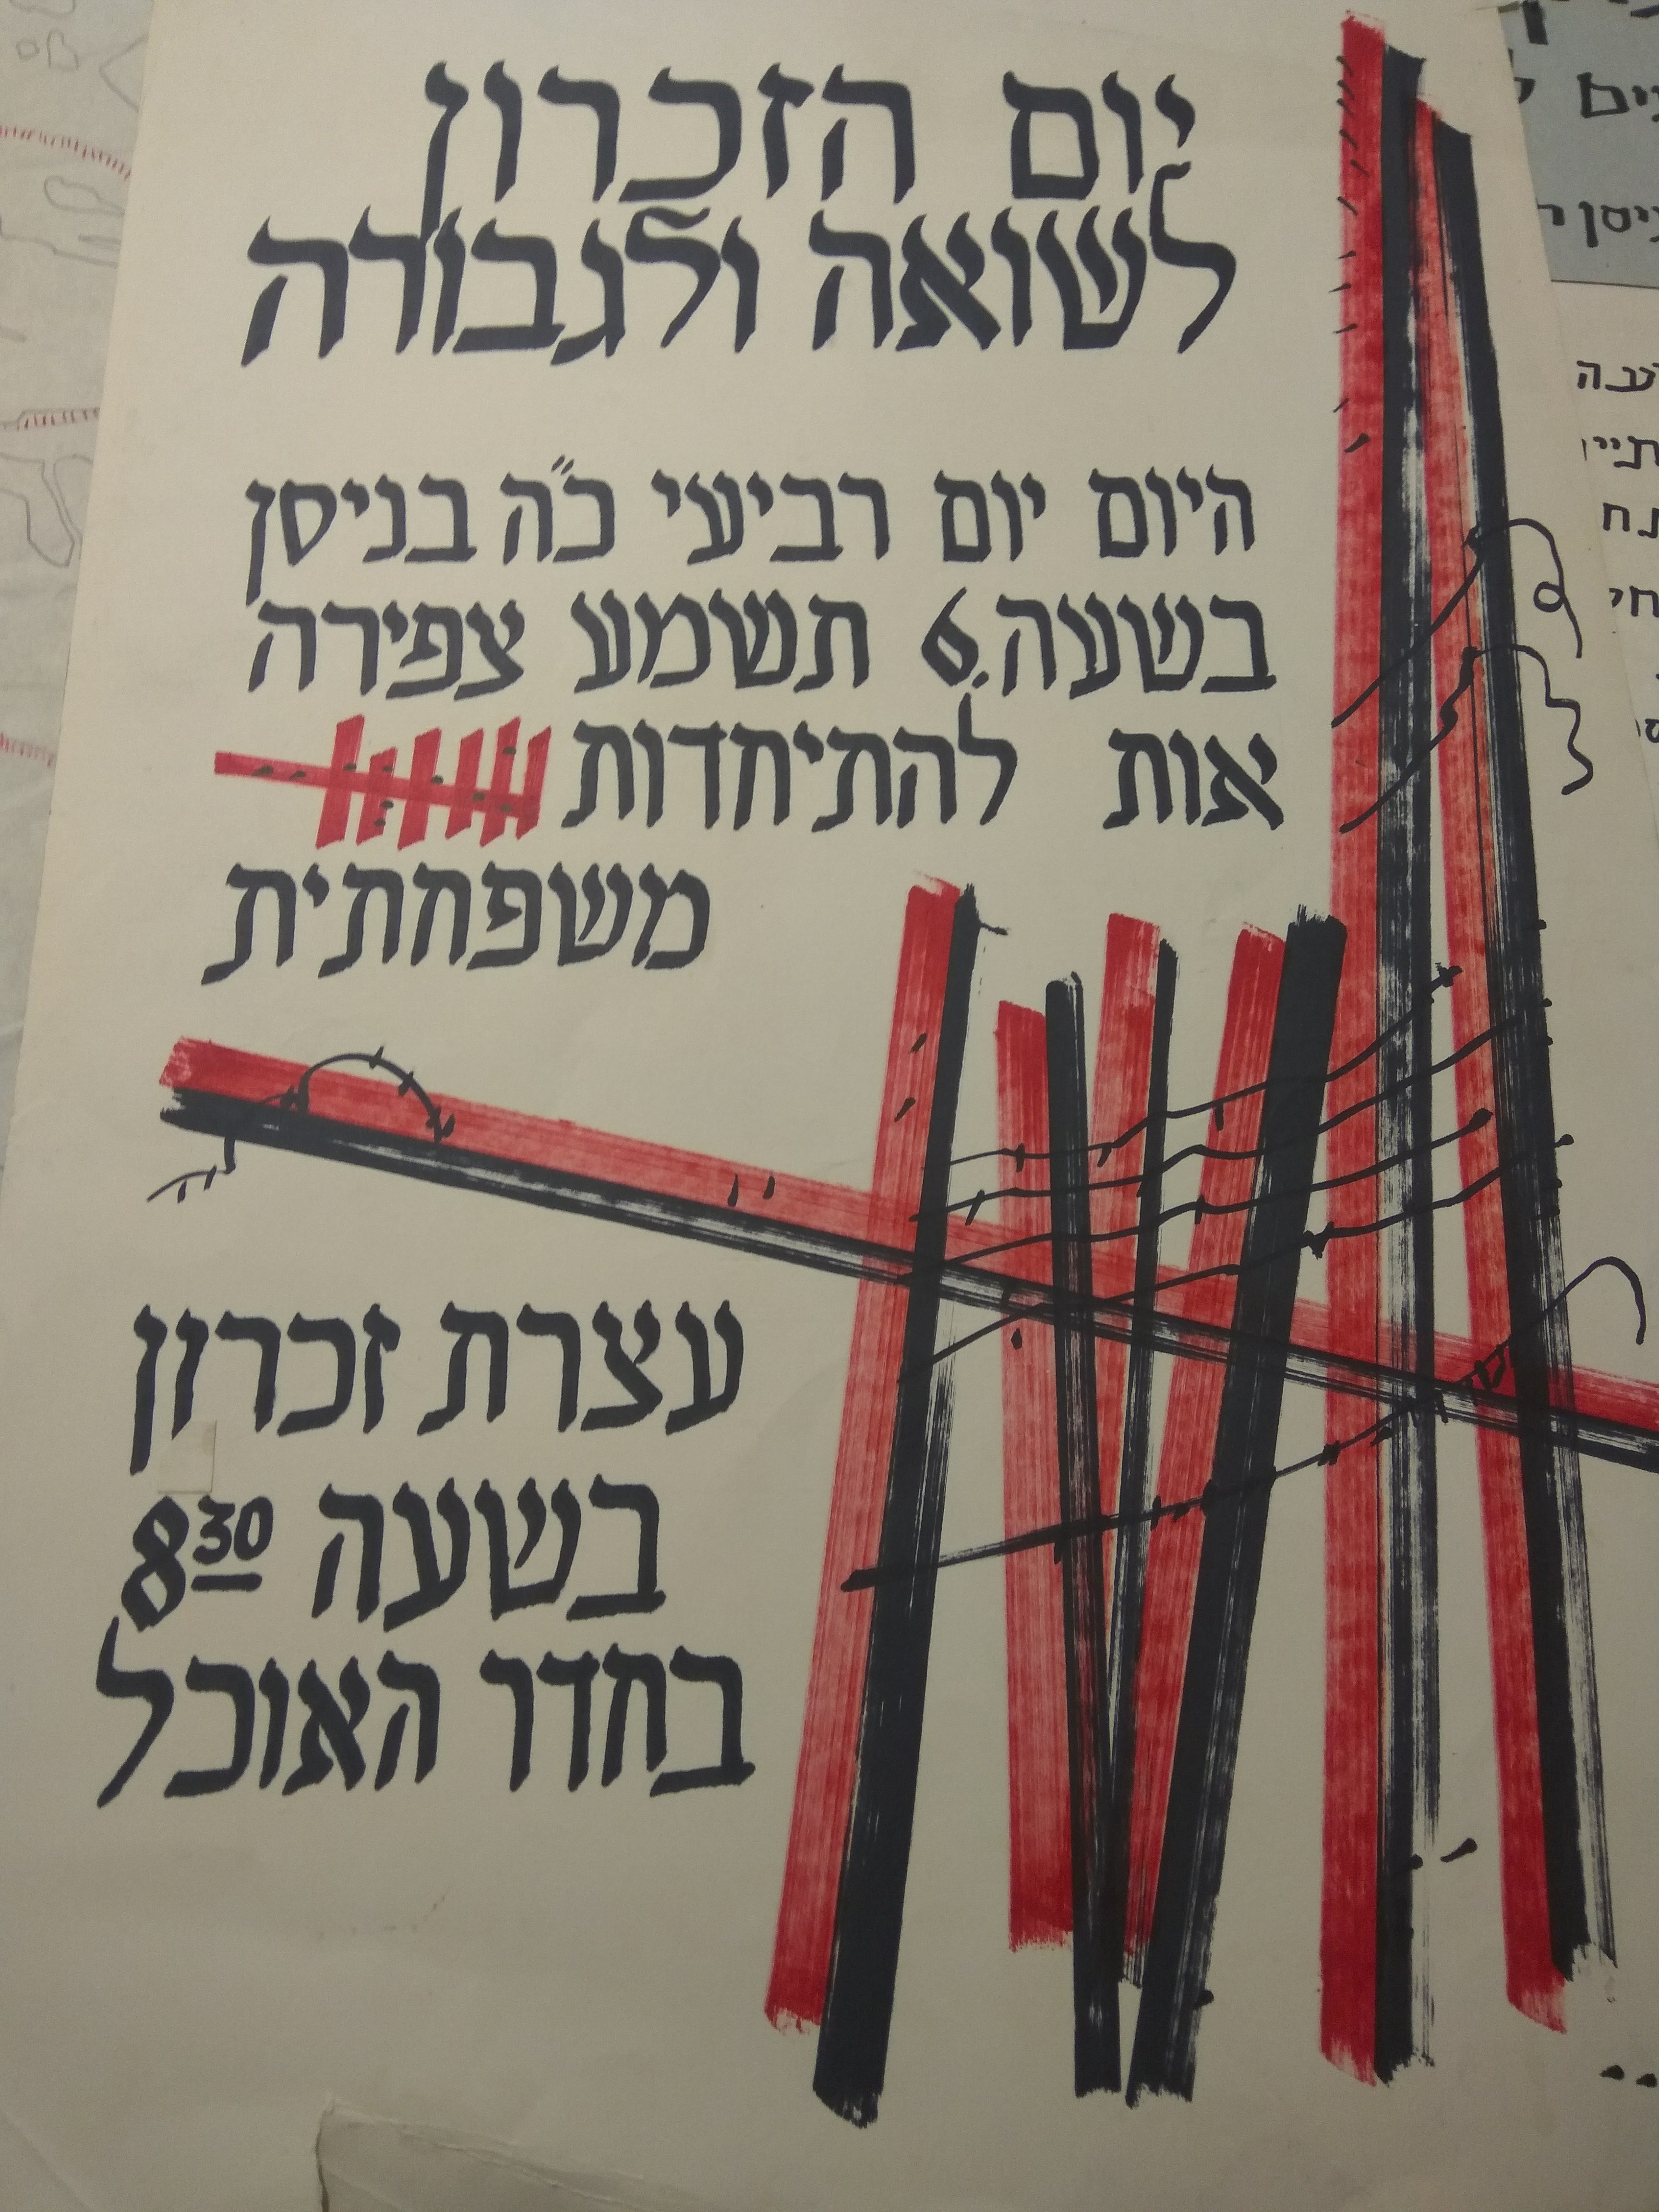 יום הזכרון
לשואה ולגבורה
היום יום רביעי כ"ה בניסן
בשעה 6 תשמע צפירה
אות להתיחדות
משפחתית
עצרת זכרון
בשעה 8³⁰
בחדר האוכל